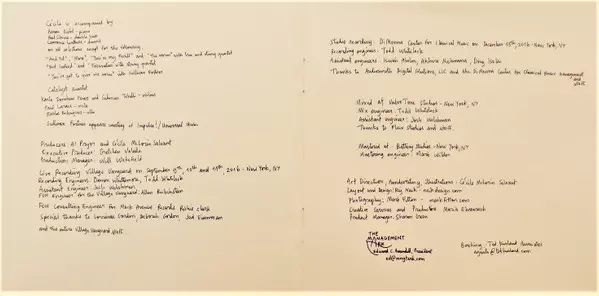 Cécile is accompanied by
Aaron Diehl - piano
Paul Sikivie - double bass
Lawrence Leathers - drums
on all selections except for the following
"And Yet", "More", "You're my Thrill" and "The worm" with trio and string quartet
"Red Instead" and "Fascination" with string quartet
"You've got to give me some" with Sullivan Fortner
Catalyst Quartet
Karla Donehew Perez and Suliman Tekalli - violins
Paul Laraia - viola
Karlos Rodriguez - cello
Sullivan Fortner appears courtesy of Impulse! / Universal Music
Producers Al Pryor and Cécile McLorin Salvant
Executive Producer: Gretchen Valade
Production Manager: Will Wakefield
Live Recording Village Vanguard on September 9th, 10th and 11th, 2016 - New York, NY
Recording Engineers: Damon Whittemore, Todd Whitelock
Assistant Engineer: Josh Welshman
FOH Engineer for the Village Vanguard: Allan
For Consulting Engineer for Mack Avenue Records Richie Clark
Special thanks to Lorraine Gordon, Deborah Gordon, Jed Eisenman
and the entire Village Vanguard staff.
Studio Recording: DiMenna Center for Classical Music on December 2016 - New York, NY
Recording engineer: Todd Whitelock
Assistant engineers:
Thanks to Audiosmith Digital Studios, LLC and the DiMenna Center for Classical Music management
and
staff.
Mixed at Valve Time Studios - New York, NY
Mix engineer: Todd Whitelock
Assistant engineer: Josh Welshman
Thanks to Studios and staff.
Mastered at - Battery Studios - New York, NY
Mastering engineer: Mark Wilder
Art Direction, Handwriting, Illustrations - Cécile McLorin Salvant
Layout and design: Raj Naik -
Photography: Mark Fitton - markfitton.com
Creative Services and Production Maria Ehrenreich
Product Manager: Sharon Green
THE
MANAGEMENT
ARK
Edward C. Arrendell, President
ed@mngtark.com
Booking: Ted Kurland Associates
@tedkurland.com